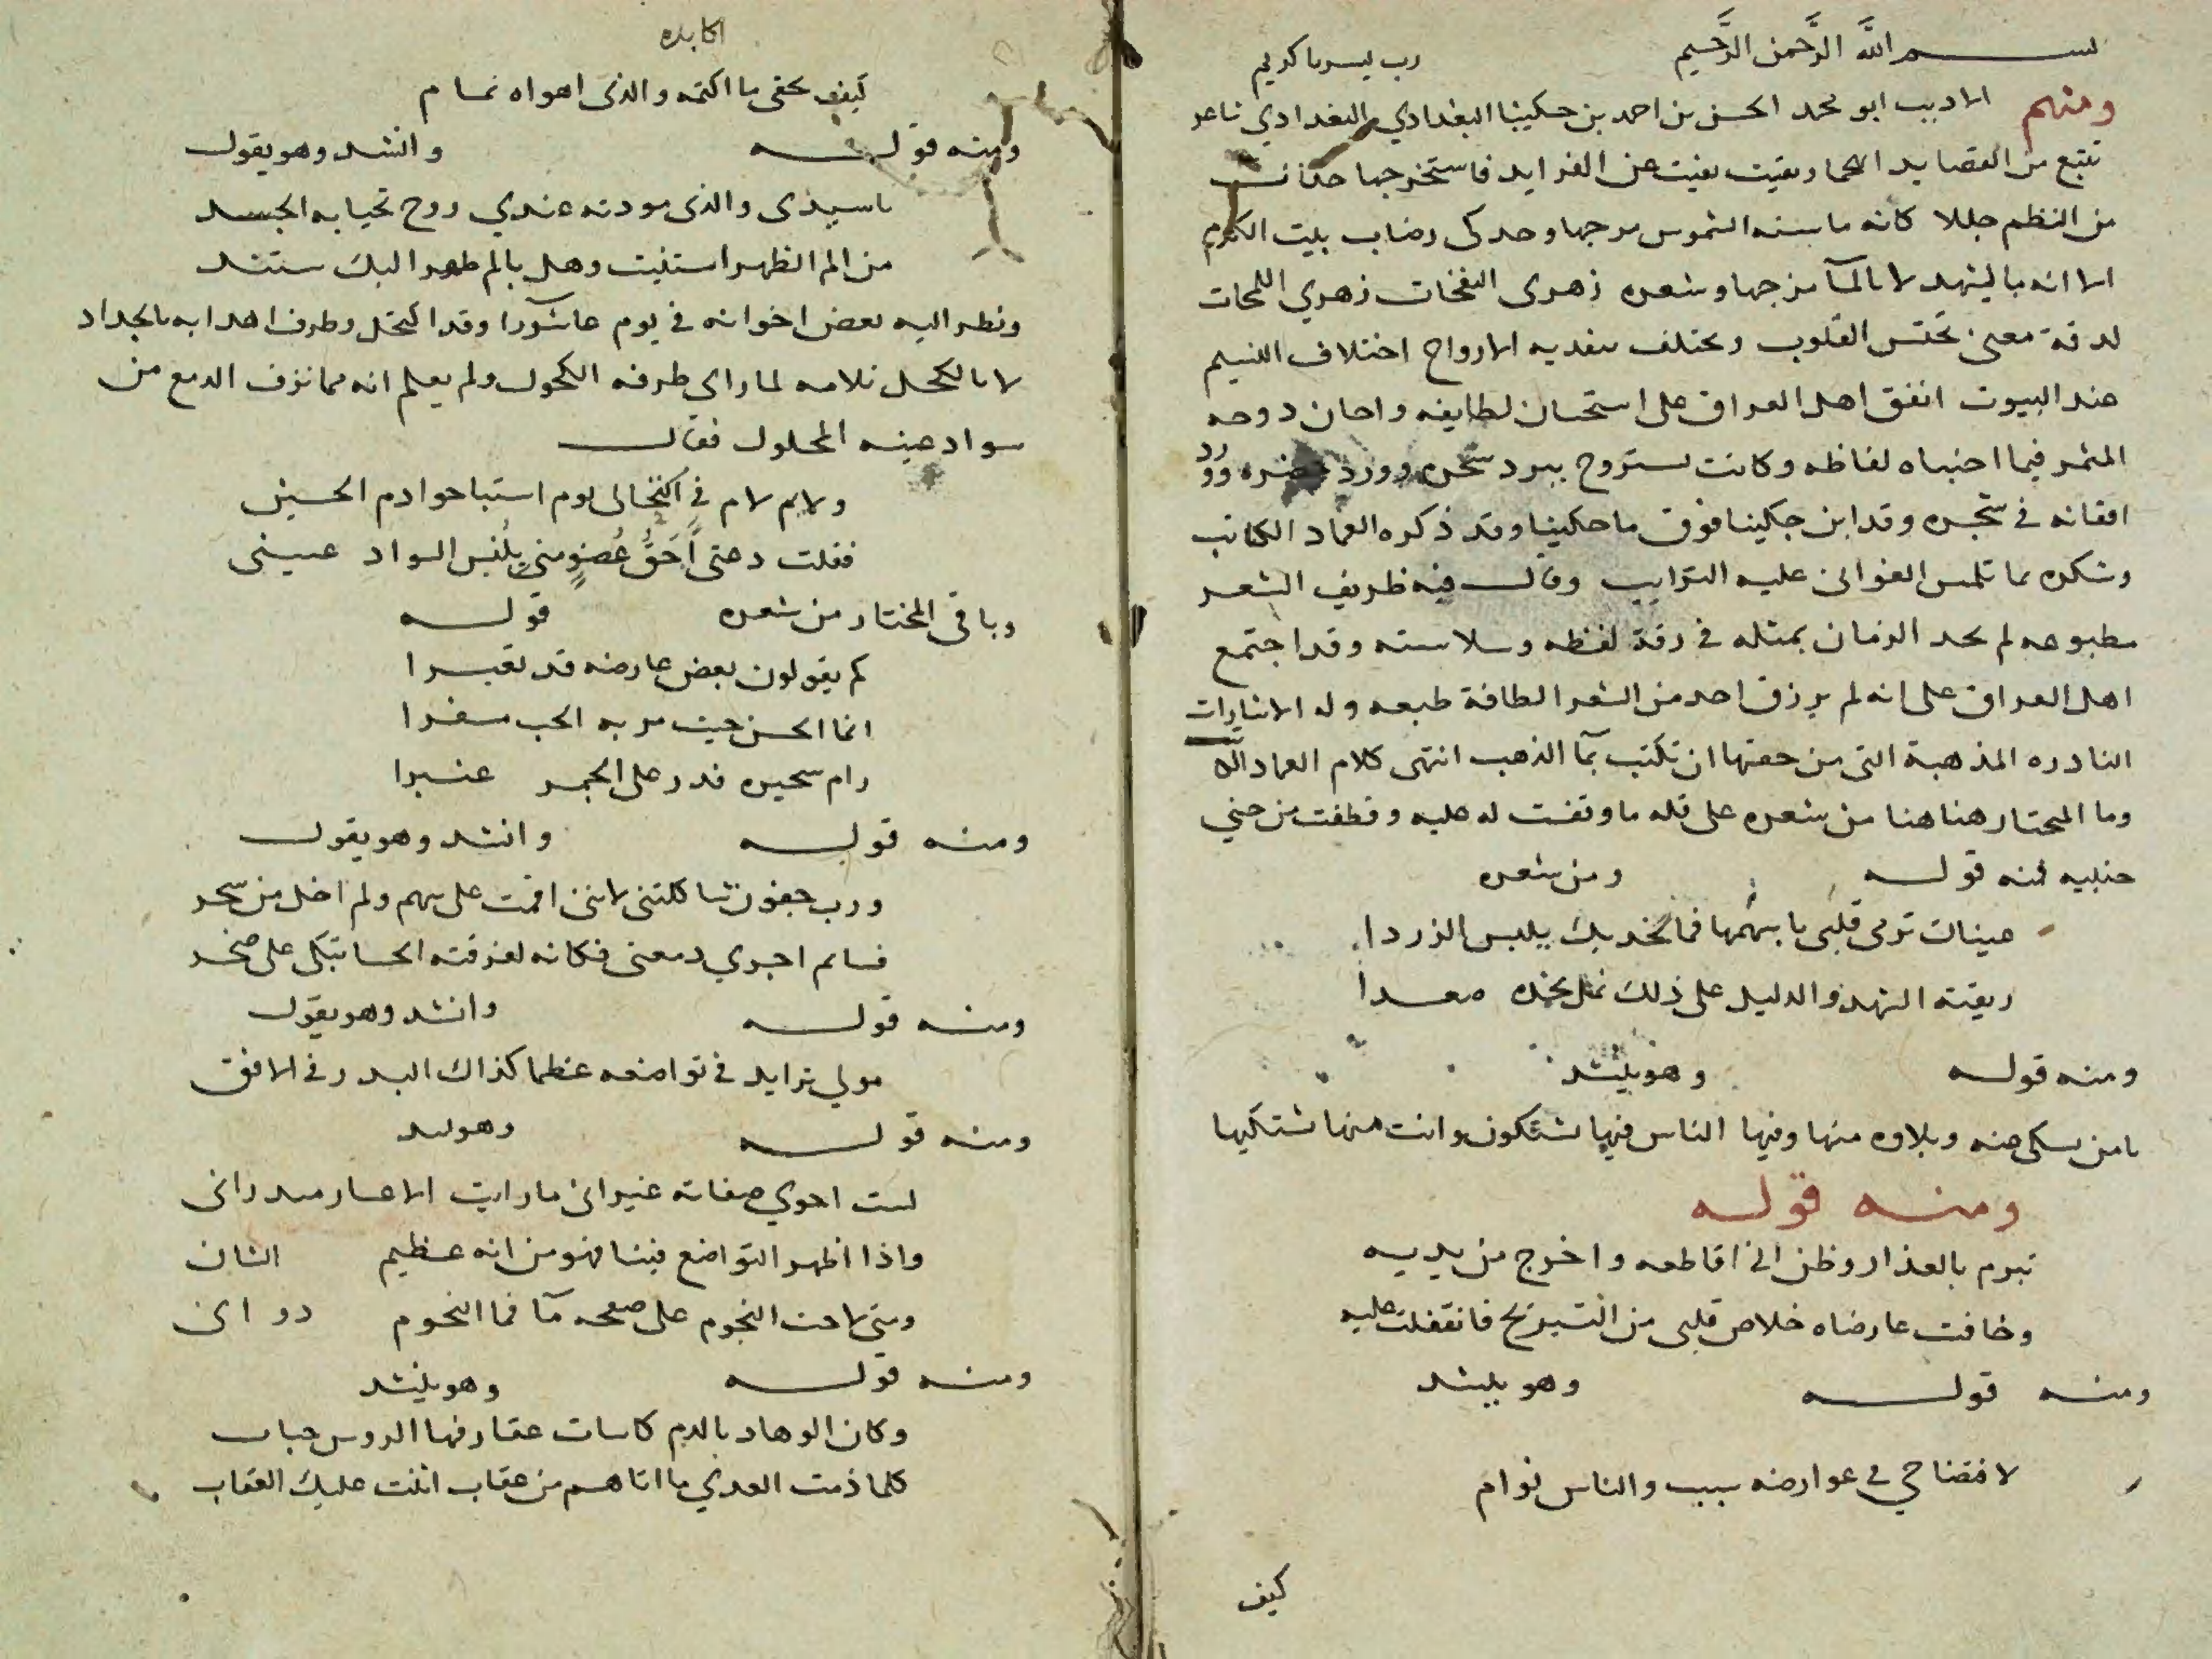 بسم الله الرَّحمن الرَّحيم رب يسر يا كريم
ومنهم الاديب ابو محمد الحسن بن احمد بن حكينا البغدادي البغدادي شاعر
تتبع من القصايد وبقيت بقيت عن الفرايد فاستخرجها
من النظم جللا كانه ما سنه الشموس مرجها وحد كى رضاب بليت الكروم
الا انه بالشهد لا بالمآ مزجها وشعره زهرى النفحات زهري اللمحات
لدقة معنى تختس القلوب ويختلف الارواح اختلاف النسيم
عند البيوت اتفق اهل العراق على استحسان لطايفه واحان دوحه
المثمر فيما اجتباه لفاظه وكانت تستروح ببرد سحره وورد
افقانه في شجره وقد ابن جكينا فوق ما حكينا وقد ذكره العماد الكاتب
وشكره بما تلمس الغوانى عليه الترايب وقال فيه ظريف الشعر
مطبوعه لم يجد الزمان بمثله في رقة لفظه وسلاسته وقد اجتمع
اهل العراق على انه لم يرزق احد من الشعر الطافة طبعه وله الاشارات
النادره المذهبة التى من حقها ان تكتب بمآ الذهب انتهى كلام العماد
وما المختار هنا هنا من شعره على قله ما وقفت له عليه وقطفت من جني
جنتيه فمنه قوله ومن شعره
عينات ترمى قلبى باسهمها فما لخديك يلبس الزردا
ريقته الشهد والدليل على ذلك نمل بخده صعدا
ومنه قوله وهو ينشد
يا من يسكى منه وبلاوه منها وفيها الناس فيها تشتكون وانت منها تشتكيها
ومنه قوله
تبرم بالعذار وظن انى اقاطعه واخرج من يديه
وخافت عارضاه خلاص قلبى من التبريح فانقفلت عليه
ومنه قوله وهو ينشد
لافتضاحي في عوارضه سبب والناس لوام
كيف
اكابده
كيف يخفى ما اكتمه والذى اهواه نمام
ومنه قوله وانشد وهو يقول
يا سيدى والذى مودته عندي روح تحيا به الجسد
من الم الظهر استغيث وهل يالم ظهر اليك يستند
ونظر اليه بعض اخوانه في يوم عاشورا وقد اكتحل وطرف اهدابه بالحداد
لا بالكحل فلامه لما راى طرفه الكحول ولم يعلم انه مما نزف الدمع من
سواد عينه المحلول فقال
ولايم لام في اكتحالى يوم استباحوا دم الحسين
فقلت دعنى اَحَقُّ عُضوٍ منى بلُبْس السواد عينى
وباقى المختار من شعره قوله
كم يقولون بعض عارضه قد تغيرا
انما الحسن حيث مر به الحب سفرا
رام تبخيره فدر على الجمر عنبرا
ومنه قوله وانشد وهو يقول
ورب جفون شاكلتنى لاننى اقمت على سهم ولم اخل من سحر
فسالم اجري دمعتى فكانه لغرقته الخنسا تبكى على صخر
ومنه قوله وانشد وهو يقول
مولى تزايد في تواضعه عظما كذاك البدر في الافق
ومنه قوله وهو ينشد
لست احوي صفاته غير انى ما رايت الاعسار مذ رانى
واذا اظهر التواضع فينا فهو من انه عظيم الشان
ومتى لاحت النجوم على صفحه مآ فما النجوم دوانى
ومنه قوله وهو ينشد
وكان الوهاد بالدم كاسات عقار فيها الروس حباب
كلما ذمت العدي ما اتاهم من عقاب اثنت عليك العقاب